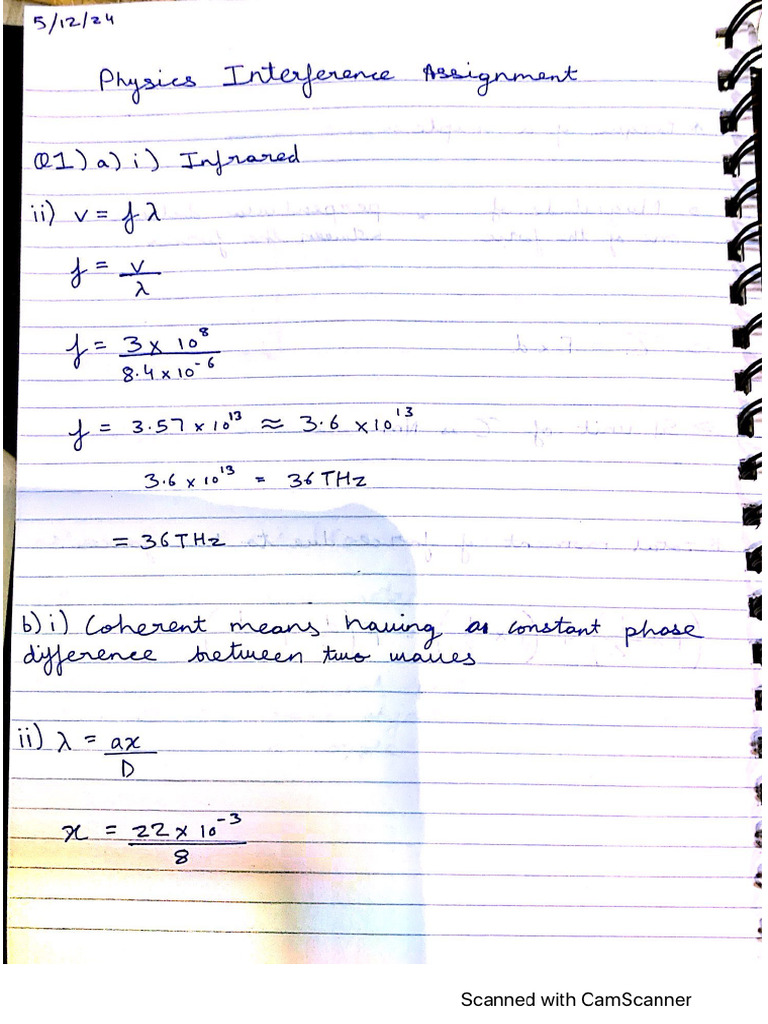 5/12/24
Physics Interference Assignment
Q1) a) i) Infrared
ii) v = fλ
f = v/λ
f = 3 x 10⁸ / 8.4 x 10⁻⁶
f = 3.57 x 10¹³ ≈ 3.6 x 10¹³
3.6 x 10¹³ = 36 THz
= 36 THz
b) i) Coherent means having a constant phase
difference between two waves
ii) λ = ax/D
x = 22 x 10⁻³ / 8
Scanned with CamScanner